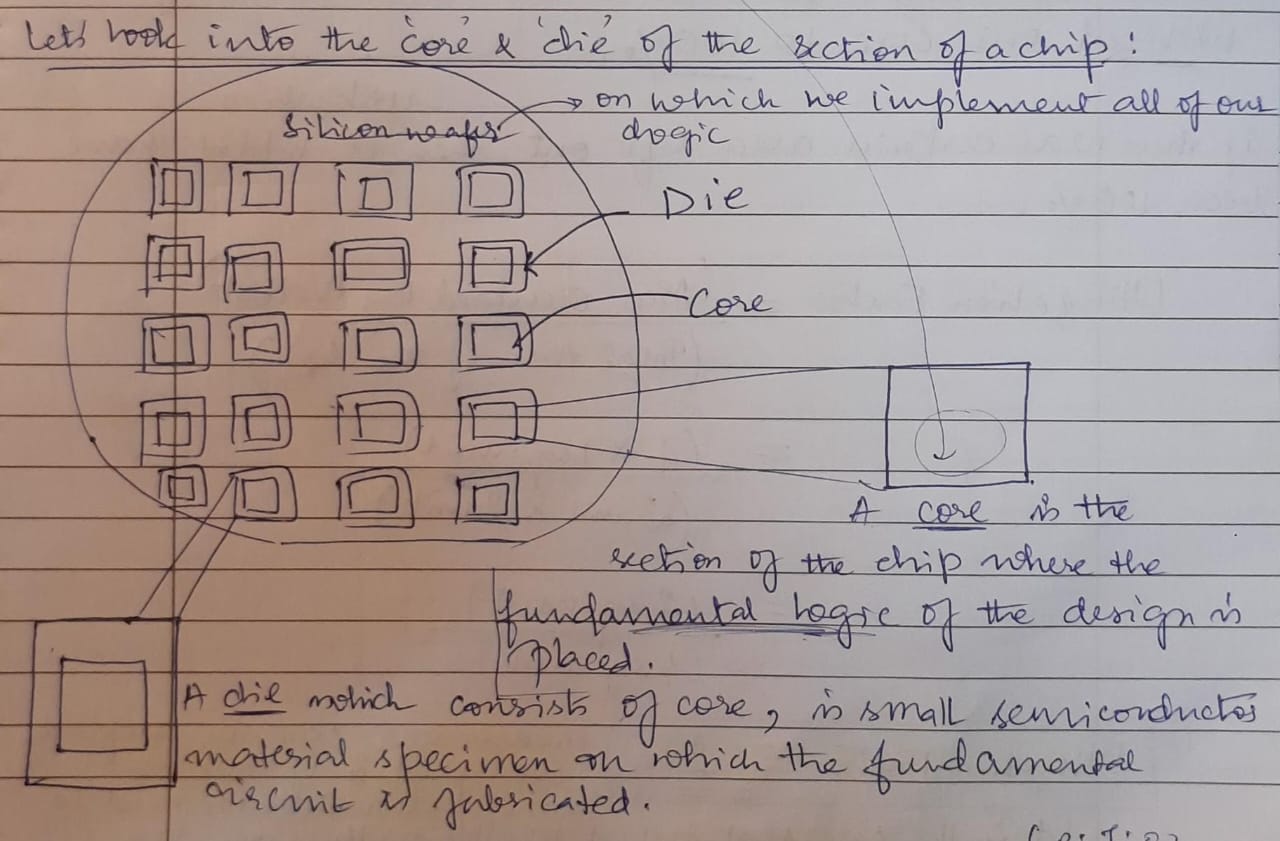 Lets look into the 'core' & 'die' of the section of a chip :
Silicon wafer → on which we implement all of our
logic
Die
Core
A core is the
section of the chip where the
fundamental logic of the design is
placed.
A die which consists of core, is small semiconductor
material specimen on which the fundamental
circuit is fabricated.